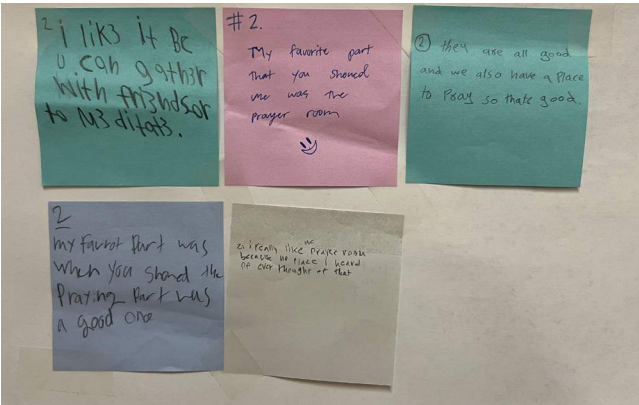 2 i lik3 it Bc
u can gath3r
with fri3nds or
to M3ditat3.
#2.
My favorite part
that you showed
me was the
prayer room
② they are all good
and we also have a Place
to Pray so thats good.
2
my favrot Part was
when you showed the
Praying Part was
a good one
2. i really like the Prayer room
because no Place I heard
of ever thought of that